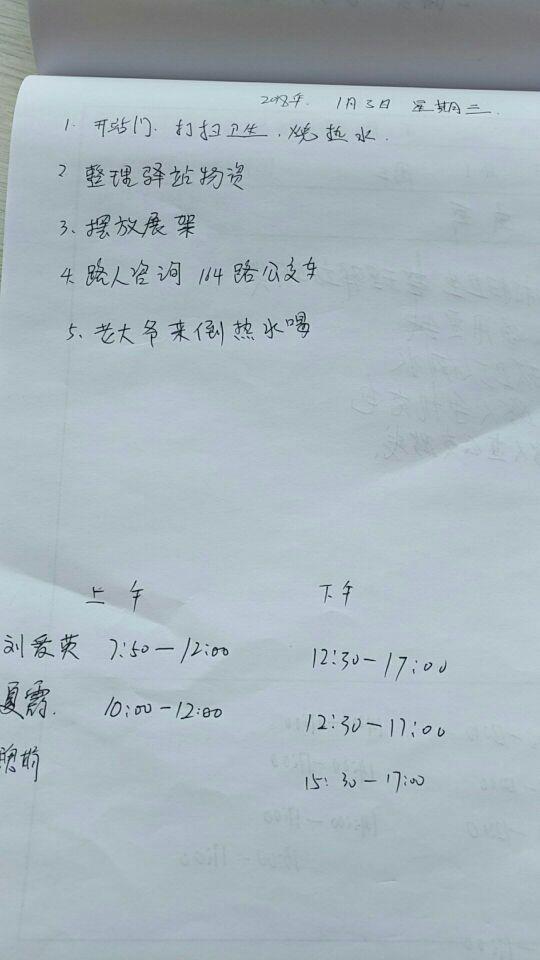 2018年. 1月3日 星期三.
1. 开站门. 打扫卫生. 烧热水.
2 整理驿站物资
3、摆放展架
4. 路人咨询 104路公交车
5、老大爷来倒热水喝
上午 下午
刘爱英 7:50—12:00 12:30—17:00
夏霞. 10:00—12:00 12:30—17:00
15:30—17:00